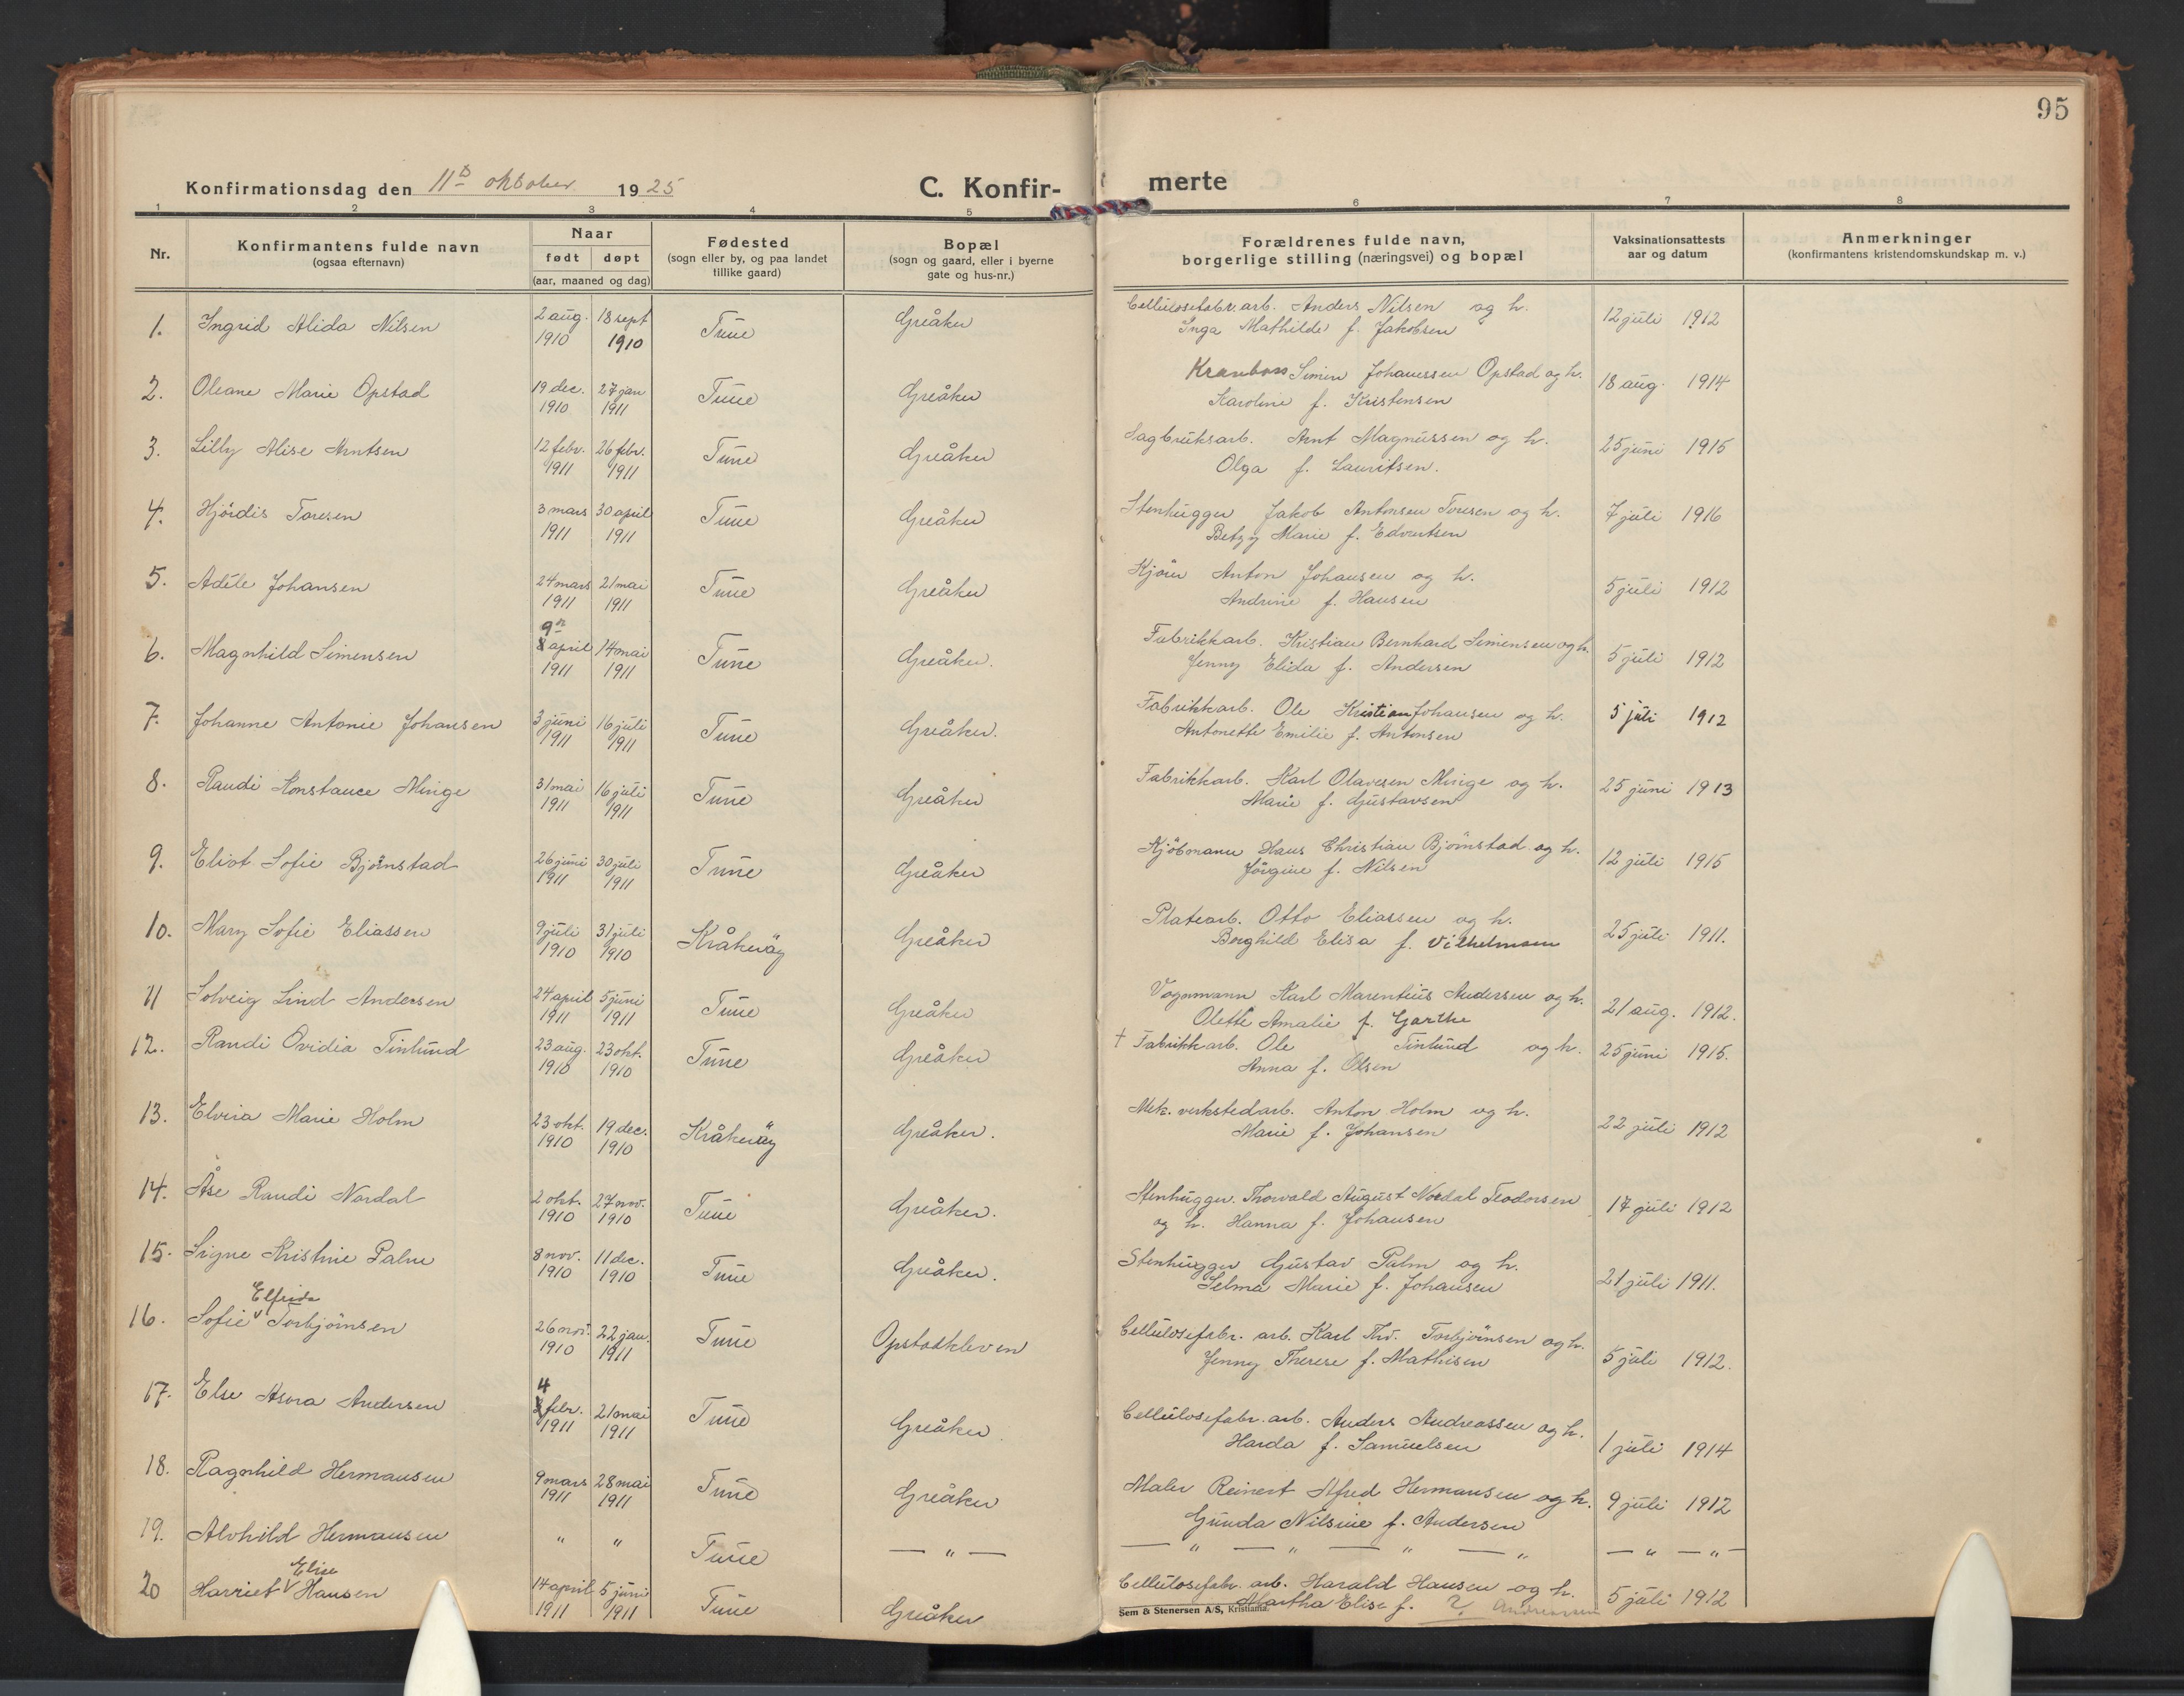 95
Konfirmationsdag den 11te oktober 1925 C. Konfir- merte
1 2 3 4 5 6 7 8
Nr. Konfirmantens fulde navn (ogsaa efternavn) Naar født døpt (aar, maaned og dag) Fødested (sogn eller by, og paa landet tillike gaard) Bopæl (sogn og gaard, eller i byerne gate og hus-nr.) Forældrenes fulde navn, borgerlige stilling (næringsvei) og bopæl Vaksinationsattests aar og datum Anmerkninger (konfirmantens kristendomskundskap m. v.)
1. Ingrid Alida Nilsen 2 aug. 1910 18 sept 1910 Tune Greåker Cellulosefabr. arb. Anders Nilsen og h. 12 juli 1912
Inga Mathilde f. Jakobsen
2. Oleane Marie Opstad 19 dec. 1910 27 jan 1911 Tune Greåker Kranbas Simen Johanessen Opstad og h. 18 aug. 1914
Karoline f. Kristensen
3. Lilly Alise Arntsen 12 febr. 1911 26 febr. 1911 Tune Greåker Sagbruksarb. Arnt Magnussen og h. 25 juni 1915
Olga f. Lauritsen.
4. Hjördis Toresen 3 mars 1911 30 april 1911 Tune Greåker Stenhugger Jakob Antonsen Toresen og h. 7 juli 1916
Betzy Marie f. Edvartsen
5. Adéle Johansen 24 mars 1911 21 mai 1911 Tune Greåker Kjörer Anton Johansen og h. 5 juli 1912
Andrine f. Hansen
6. Magnhild Simensen 9de april 1911 14 mai 1911 Tune Greåker. Fabrikkarb. Kristian Bernhard Simensen og h. 5 juli 1912
Jenny Elida f. Andersen
7. Johanne Antonie Johansen 3 juni 1911 16 juli 1911 Tune Greåker. Fabrikkarb. Ole Kristian Johansen og h. 5 juli 1912
Antonette Emilie f. Antonsen
8. Randi Konstance Minge 31 mai 1911 16 juli 1911 Tune Greåker Fabrikkarb. Karl Olavesen Minge og h. 25 juni 1913
Marie f. Gustavsen
9. Eliot Sofie Bjørnstad 26 juni 1911 30 juli 1911 Tune Greåker Kjöbmann Hans Christian Bjørnstad og h. 12 juli 1915
Jörgine f. Nilsen
10. Mary Sofie Eliassen 9 juli 1910 31 juli 1910 Kråkeröy Greåker Platearb. Otto Eliassen og h. 25 juli 1911.
Borghild Elisa f. Vilhelmsen
11 Solveig Lind Andersen 24 april 1911 5 juni 1911 Tune Greåker Vognmann Karl Marentius Andersen og h. 21 aug. 1912.
Olette Amalie f. Garthe
12. Randi Ovidia Tinlund 23 aug. 1910 23 okt. 1910 Tune Greåker † Fabrikkarb. Ole Tinlund og h. 25 juni 1915.
Anna f. Olsen
13. Elvira Marie Holm 23 okt. 1910 19 dec. 1910 Kråkeröy Greåker. Mek. verkstedarb. Anton Holm og h. 22 juli 1912
Marie f. Johansen
14. Åse Randi Nordal 2 okt. 1910 27 nov. 1910 Tune Greåker. Stenhugger. Thorvald August Nordal Teodorsen 17 juli 1912
og h. Hanna f. Johansen
15. Signe Kristine Palm 8 nov. 1910 11 dec. 1910 Tune Greåker. Stenhugger Gustav Palm og h. 21 juli 1911.
Selma Marie f. Johansen
Elfrida
16. Sofie v Torbjørnsen 26 nov. 1910 22 jan. 1911 Tune Opstadkleven Cellulosefabr. arb. Karl Thv. Torbjörnsen og h. 5 juli 1912.
Jenny Therese f. Mathisen
17. Else Asora Andersen 4 febr. 1911 21 mai 1911 Tune Greåker. Cellulosefabr. arb. Anders Andreassen og h. 1 juli 1914
Harda f. Samuelsen
18. Ragnhild Hermansen 9 mars 1911 28 mai 1911 Tune Greåker Maler Reinert Alfred Hermansen og h. 9 juli 1912
Gunda Nilsine f. Andersen
19. Alvhild Hermansen " " Tune — " — — " — " — " — " — " — "
Elise
20 Harriet v Hansen 14 april 1911 5 juni 1911 Tune Greåker Cellulosefabr. arb. Harald Hansen og h. 5 juli 1912
Martha Elise f. ? Andreassen
Sem & Stenersen A/S, Kristiania.